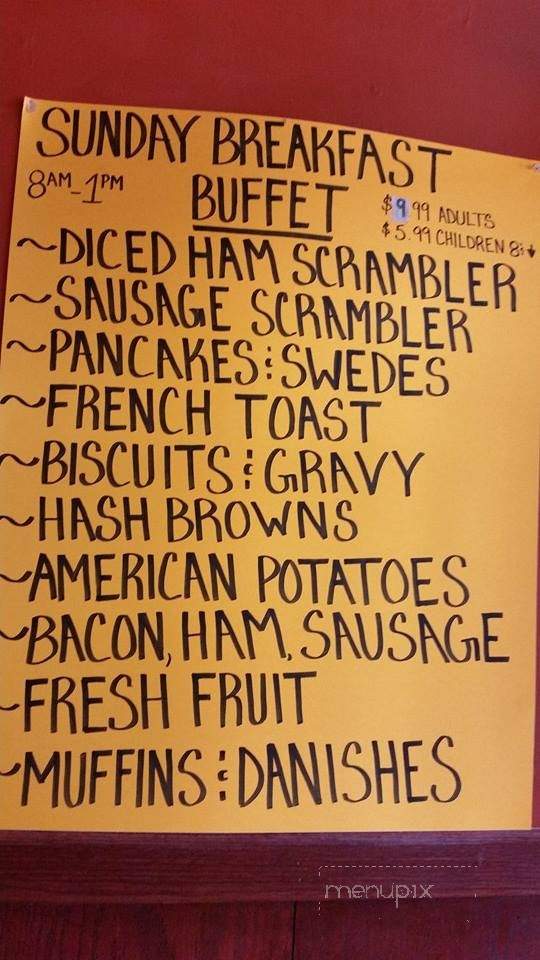 SUNDAY BREAKFAST
8AM-1PM BUFFET
$9.99 ADULTS
$5.99 CHILDREN 8 & ↓
~DICED HAM SCRAMBLER
~SAUSAGE SCRAMBLER
~PANCAKES & SWEDES
~FRENCH TOAST
~BISCUITS & GRAVY
~HASH BROWNS
~AMERICAN POTATOES
~BACON, HAM, SAUSAGE
~FRESH FRUIT
~MUFFINS & DANISHES
menupix